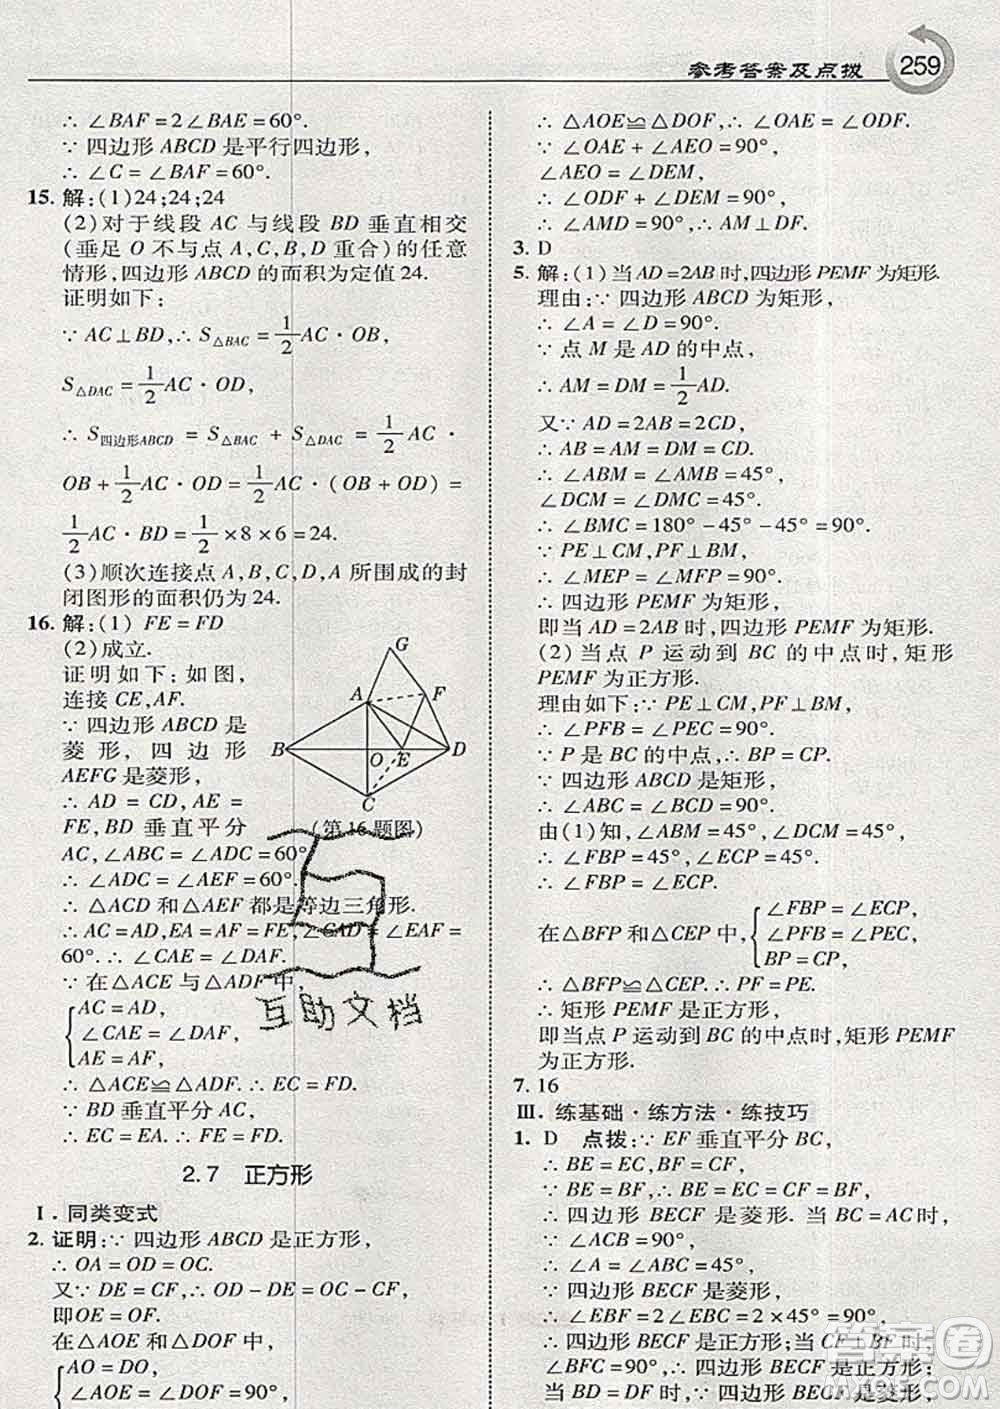 参考答案及点拨 259
∴ ∠BAF=2∠BAE=60°.
∵ 四边形 ABCD 是平行四边形,
∴ ∠C=∠BAF=60°.
15. 解:(1)24;24;24
(2)对于线段 AC 与线段 BD 垂直相交
(垂足 O 不与点 A,C,B,D 重合)的任意
情形,四边形 ABCD 的面积为定值 24.
证明如下:
∵ AC⊥BD,∴ S△BAC=1/2 AC·OB,
S△DAC=1/2 AC·OD,
∴ S四边形ABCD = S△BAC + S△DAC = 1/2 AC·
OB+1/2 AC·OD=1/2 AC·(OB+OD)=
1/2 AC·BD=1/2×8×6=24.
(3)顺次连接点 A,B,C,D,A 所围成的封
闭图形的面积仍为 24.
16. 解:(1) FE=FD
(2)成立.
证明如下:如图,
连接 CE,AF.
∵ 四边形 ABCD 是
菱形,四边形
AEFG 是菱形,
∴ AD = CD,AE =
FE,BD 垂直平分
AC,∠ABC=∠ADC=60°
∴ ∠ADC=∠AEF=60°.
∴ △ACD 和△AEF 都是等边三角形.
∴ AC=AD,EA=AF=FE,∠CAD=∠EAF=
60°.∴ ∠CAE=∠DAF.
∵ 在△ACE 与△ADF 中,
AC=AD,
∠CAE=∠DAF,
AE=AF,
∴ △ACE≌△ADF.∴ EC=FD.
∵ BD 垂直平分 AC,
∴ EC=EA.∴ FE=FD.
G
A
F
B
O
E
D
C
(第 16 题图)
互助文档
2.7 正方形
Ⅰ. 同类变式
2. 证明:∵ 四边形 ABCD 是正方形,
∴ OA=OD=OC.
又∵ DE=CF,∴ OD-DE=OC-CF,
即OE=OF.
在△AOE 和△DOF 中,
AO=DO,
∠AOE=∠DOF=90°,
∴ △AOE≌△DOF,∴ ∠OAE=∠ODF.
∵ ∠OAE+∠AEO=90°,
∠AEO=∠DEM,
∴ ∠ODF+∠DEM=90°,
∴ ∠AMD=90°,∴ AM⊥DF.
3. D
5. 解:(1)当 AD=2AB 时,四边形 PEMF 为矩形.
理由:∵ 四边形 ABCD 为矩形,
∴ ∠A=∠D=90°.
∵ 点 M 是 AD 的中点,
∴ AM=DM=1/2 AD.
又∵ AD=2AB=2CD,
∴ AB=AM=DM=CD.
∴ ∠ABM=∠AMB=45°,
∠DCM=∠DMC=45°.
∴ ∠BMC=180°-45°-45°=90°.
∵ PE⊥CM,PF⊥BM,
∴ ∠MEP=∠MFP=90°.
∴ 四边形 PEMF 为矩形,
即当 AD=2AB 时,四边形 PEMF 为矩形.
(2)当点 P 运动到 BC 的中点时,矩形
PEMF 为正方形.
理由如下:∵ PE⊥CM,PF⊥BM,
∴ ∠PFB=∠PEC=90°.
∵ P 是 BC 的中点,∴ BP=CP.
∵ 四边形 ABCD 是矩形,
∴ ∠ABC=∠BCD=90°.
由(1)知,∠ABM=45°,∠DCM=45°,
∴ ∠FBP=45°,∠ECP=45°,
∴ ∠FBP=∠ECP.
在△BFP 和△CEP 中,
∠FBP=∠ECP,
∠PFB=∠PEC=90°,
BP=CP,
∴ △BFP≌△CEP,∴ PF=PE.
∴ 矩形 PEMF 是正方形.
即当点 P 运动到 BC 的中点时,矩形 PEMF
为正方形.
7. 16
Ⅲ. 练基础·练方法·练技巧
1. D 点拨:∵ EF 垂直平分 BC,
∴ BE=EC,BF=CF.
∵ BF=BE,∴ BE=EC=CF=BF,
∴ 四边形 BECF 是菱形.当 BC=AC 时,
∵ ∠ACB=90°,
∴ ∠A=∠EBC=45°.
∵ 四边形 BECF 是菱形,
∴ ∠EBF=2∠EBC=2×45°=90°,
∴ 四边形 BECF 是正方形;当 CF⊥BF 时,
∠BFC=90°,四边形 BECF 是正方形;
当 BD=DF 时,∵ 四边形 BECF 是菱形,
答案圈
MXQE.COM